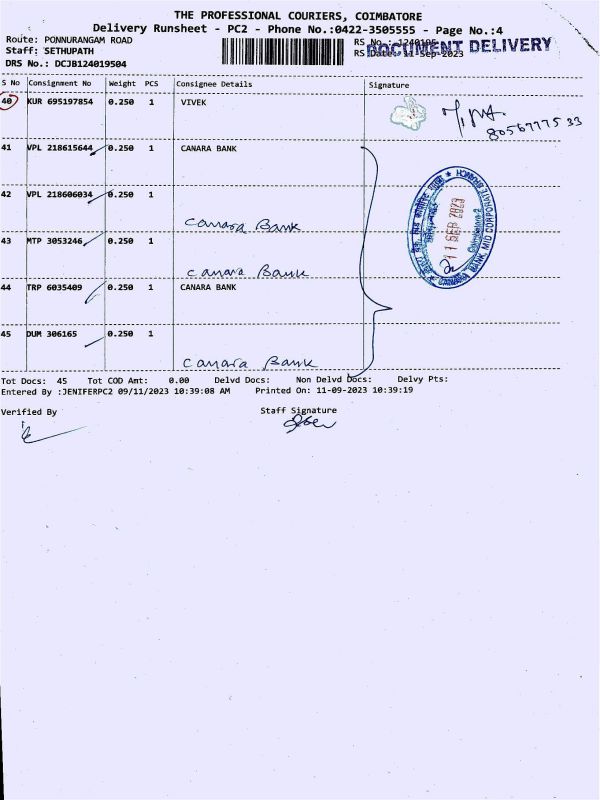 THE PROFESSIONAL COURIERS, COIMBATORE
Delivery Runsheet - PC2 - Phone No.:0422-3505555 - Page No.:4
Route: PONNURANGAM ROAD
Staff: SETHUPATH
DRS No.: DCJB124019504
RS No.:
RS Date: 11-Sep-2023
DOCUMENT DELIVERY
S No Consignment No Weight PCS Consignee Details Signature
40 KUR 695197854 0.250 1 VIVEK
8056777533
41 VPL 218615644 0.250 1 CANARA BANK
42 VPL 218606034 0.250 1
Canara Bank
43 MTP 3053246 0.250 1
Canara Bank
44 TRP 6035409 0.250 1 CANARA BANK
45 DUM 306165 0.250 1
Canara Bank
11 SEP 2023
CANARA BANK, MID CORPORATE BRANCH
Coimbatore-2
Tot Docs: 45 Tot COD Amt: 0.00 Delvd Docs: Non Delvd Docs: Delvy Pts:
Entered By :JENIFERPC2 09/11/2023 10:39:08 AM Printed On: 11-09-2023 10:39:19
Verified By Staff Signature